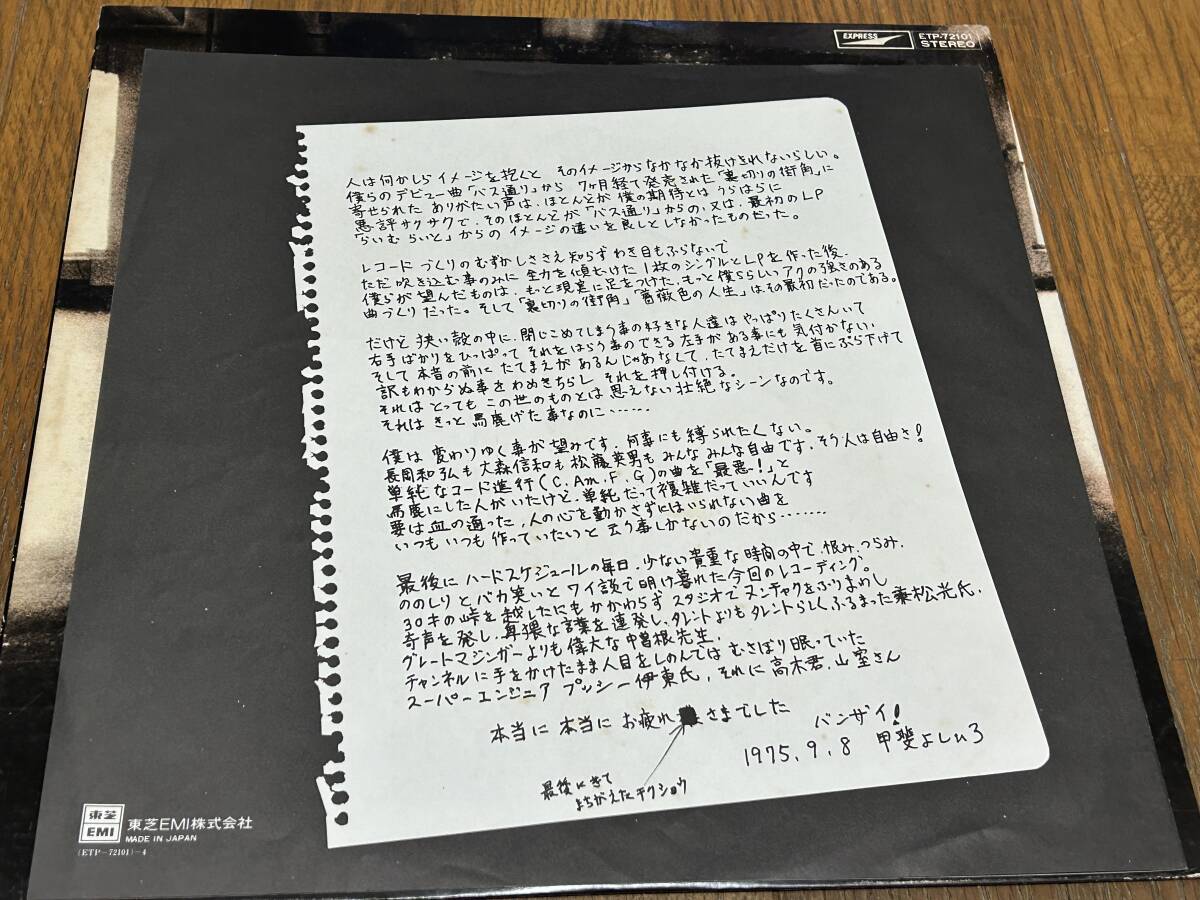 EXPRESS
ETP-72101
STEREO
人は何かしらイメージを抱くと そのイメージからなかなか抜けきれないらしい。
僕らのデビュー曲「バス通り」から 7ヶ月経て発売された「裏切りの街角」に
寄せられた ありがたい声は、ほとんどが 僕の期待とは うらはらに
悪評サクサクで、そのほとんどが「バス通り」からの、又は、最初のLP
「らいむらいと」からの イメージの違いを良しとしなかったものだった。
レコードづくりのむずかしささえ知らず わき目もふらないで
ただ吹き込む事のみに 全力を傾むけた 1枚のシングルとLPを作った後、
僕らが望んだものは、もっと現実に足をつけた、もっと僕ららしいアクの強さのある
曲づくりだった。そして「裏切りの街角」「薔薇色の人生」はその最初だったのである。
だけど 狭い殻の中に、閉じこめてしまう事の好きな人達は やっぱりたくさんいて
右手ばかりをひっぱって それをはらう事のできる左手がある事にも気付かない、
そして 本音の前に たてまえがあるんじゃあなくて、たてまえだけを 首にぶら下げて
訳もわからぬ事を わめきちらし それを押し付ける。
それは とっても この世のものとは 思えない壮絶なシーンなのです。
それは きっと 馬鹿げた事なのに……
僕は 変わりゆく事が望みです、何事にも縛られたくない。
長岡和弘も 大森信和も 松藤英男も みんなみんな自由です、そう人は自由さ!
単純なコード進行(C.Am.F.G)の曲を「最悪!」と
馬鹿にした人がいたけど、単純だって複雑だっていいんです
要は血の通った、人の心を動かさずにはいられない曲を
いつもいつも作っていたいと 云う事しかないのだから………
最後に ハードスケジュールの毎日、少ない貴重な時間の中で、恨み、つらみ、
ののしりと バカ笑いと ワイ談で明け暮れた今回のレコーディング。
30キの峠を越したにもかかわらず スタジオでヌンチャクをふりまわし
奇声を発し、卑猥な言葉を連発し、タレントよりもタレントらしくふるまった乗松光氏、
グレートマジンガーよりも偉大な中曽根先生、
チャンネルに手をかけたまま人目をしのんでは むさぼり眠っていた
スーパーエンジニア プッシー伊東氏、それに 高木君、山室さん
本当に 本当に お疲れさまでした
バンザイ!
1975.9.8 甲斐よしひろ
最後にきて
まちがえた チクショウ
東芝
EMI
東芝EMI株式会社
MADE IN JAPAN
(ETP-72101)-4